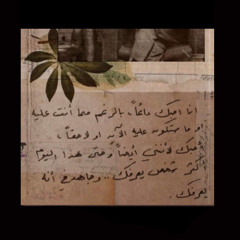 انا احبك دائماً، بالرغم مما أنت عليه
او ما ستكونه عليه الآن او لاحقاً،
احبك لأنني أيضاً وحتى هذا اليوم
أكثر شخص يعرفك.. وجاهد في أنه
يعرفك.